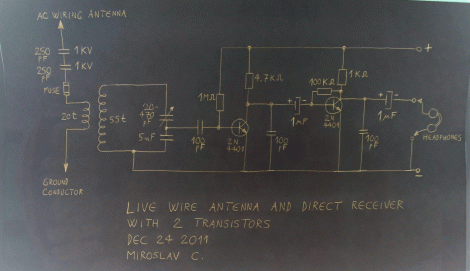 AC WIRING ANTENNA
250 PF
1KV
250 PF
1KV
FUSE
20t
55t
20-
470
PF
5nF
GROUND
CONDUCTOR
1MΩ
100
PF
4,7KΩ
2N
4401
100
PF
1MF
100KΩ
1KΩ
2N
4401
1MF
100
PF
+
HEADPHONES
LIVE WIRE ANTENNA AND DIRECT RECEIVER
WITH 2 TRANSISTORS
DEC 24 2011
MIROSLAV C.